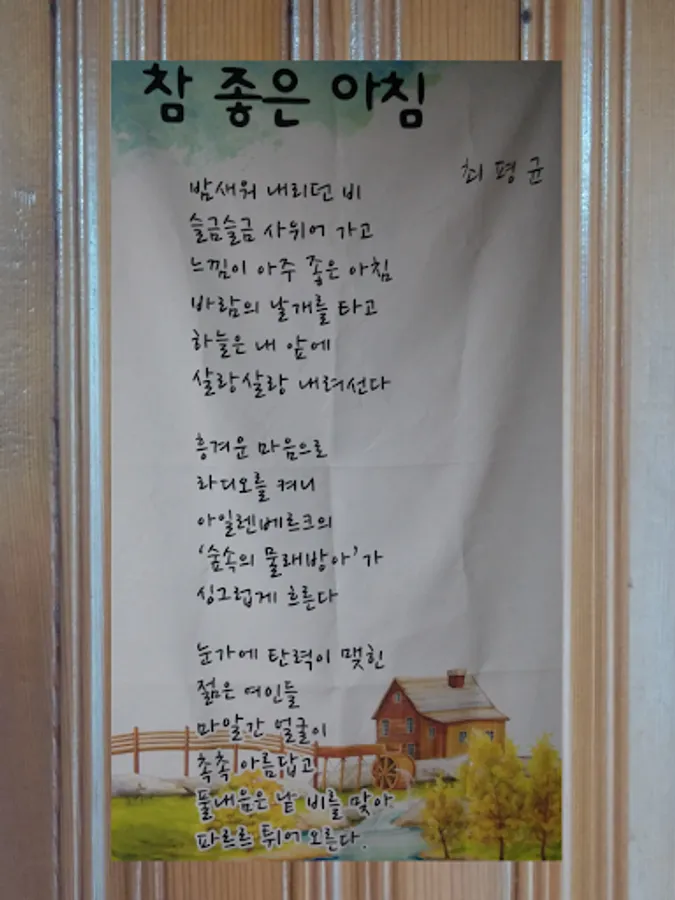 참 좋은 아침
최평균
밤새워 내리던 비
슬금슬금 사위어 가고
느낌이 아주 좋은 아침
바람의 날개를 타고
하늘은 내 앞에
살랑살랑 내려선다
흥겨운 마음으로
라디오를 켜니
아일렌베르크의
'숲속의 물래방아'가
싱그럽게 흐른다
눈가에 탄력이 맺힌
젊은 여인들
마알간 얼굴이
촉촉 아름답고
풀내음은 낱 비를 맞아
파르르 튀어 오른다.